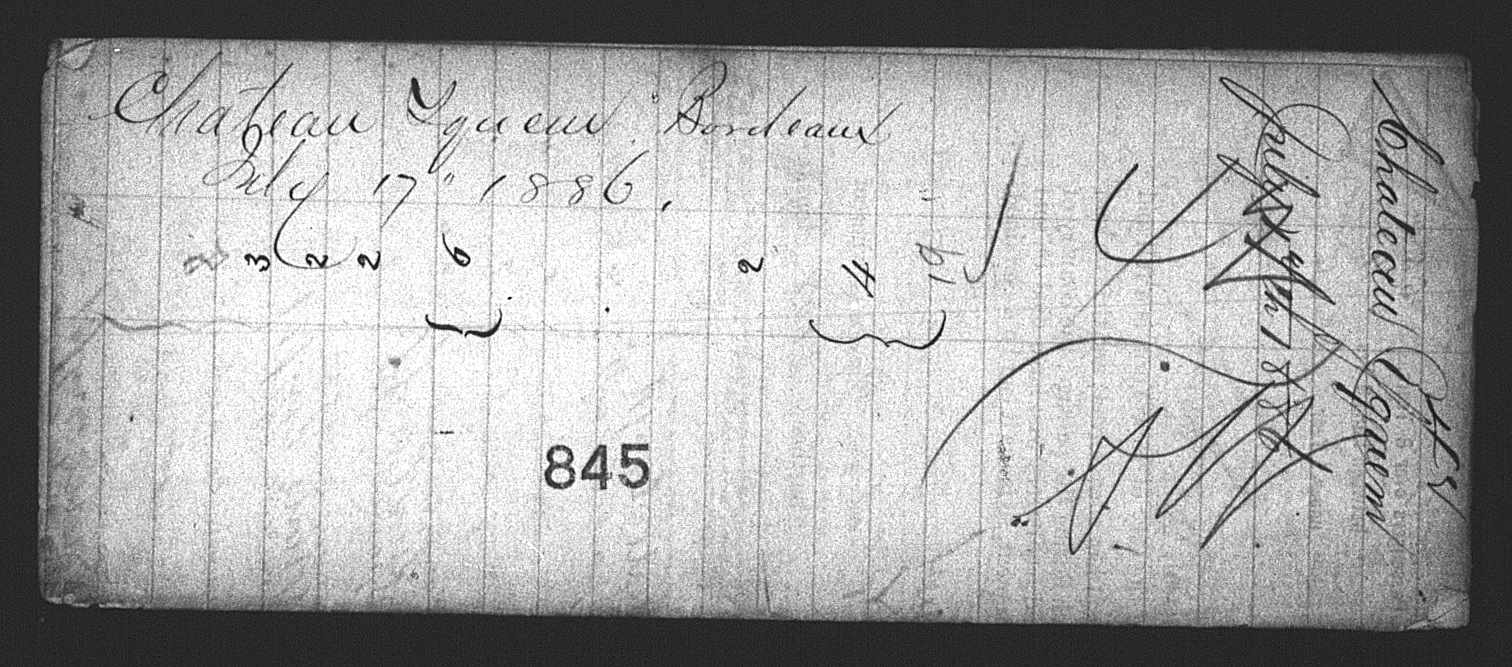 Chateau Yquem Bordeaux
July 17" 1886.
3 2 2 6 2 4 19
845
Chateau Yquem
July 17th 1886